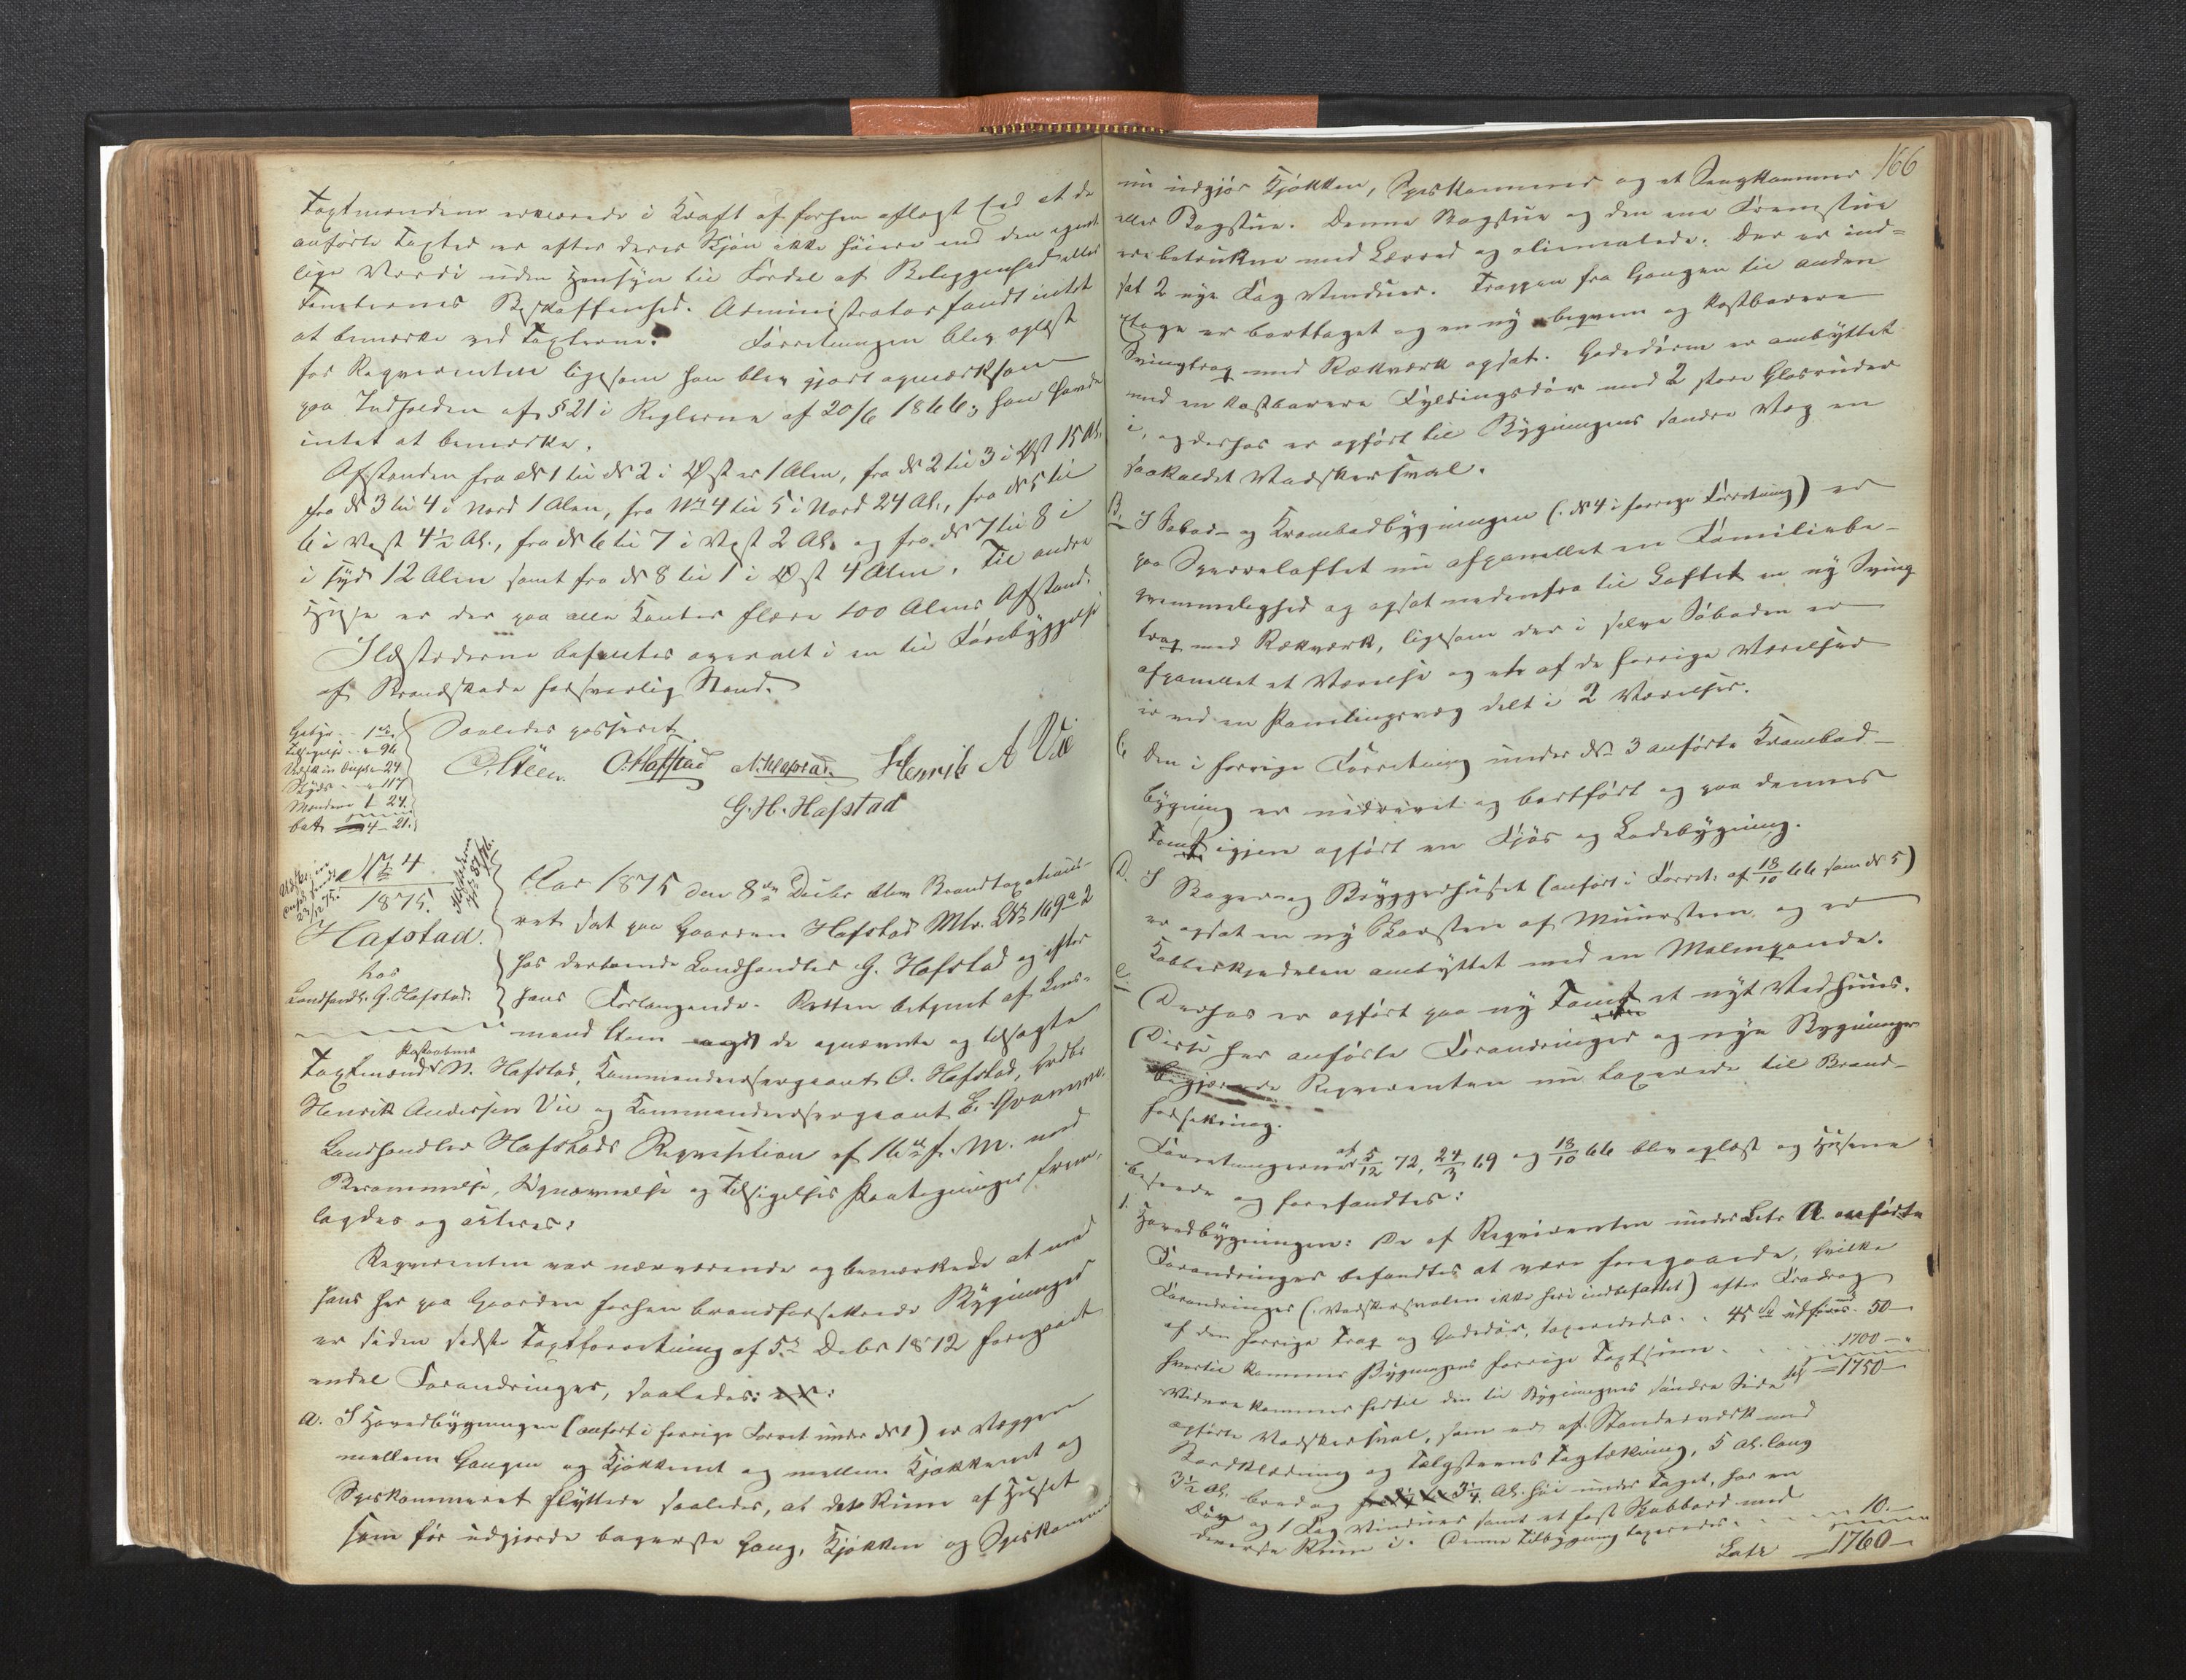 Taxtmændene erklærede i Kraft af forhen aflagt Eed at de
anførte Taxter er efter deres Skjøn ikke høiere end den egent-
lige Værdi uden Hensyn til Fordel af Beliggenhed eller
Tomternes Beskaffenhed. Administrator fandt intet
at bemærke ved Taxterne. Forretningen blev oplæst
for Reqvirenten ligesom han blev gjort opmærksom
paa Indholden af § 21 i Reglerne af 20/6 1866; han havde
intet at bemærke.
Afstanden fra № 1 til № 2 i Øst er 1 Alen, fra № 2 til 3 i Øst 15 Al.
fra № 3 til 4 i Nord 1 Alen, fra No 4 til 5 i Nord 24 Al., fra № 5 til
6 i Vest 4½ Al., fra № 6 til 7 i Vest 2 Al. og fra № 7 til 8 i
i Syd 12 Alen samt fra № 8 til 1 i Øst 4 Alen. Til andre
Huse er der paa alle Kanter flere 100 Alens Afstand.
Ildstederne befantes overalt i en til Forebyggelse
af Brandskade forsvarlig Stand.
Saaledes passeret
O. Steen. O. Hafstad N. Hafstad. Henrik A Vie
G. H. Hafstad
Gebyr 1
Tilsigelse 96
24
Skyds 117
Mændene 1 24.
4 - 21.
No 4
1875.
Hafstad.
hos
Landhandl. G. Hafstad.
Aar 1875 den 8de Decbr blev Brandtaxations-
ret sat paa Gaarden Hafstad Mtr. L№ 169a 2
hos derboende Landhandler G. Hafstad og efter
hans Forlangende. Retten betjent af Lens-
mand Steen de opnævnte og tilsagte
Taxtmænd N. Hafstad, Kommandeersergeant O. Hafstad, Grdbr
Henrik Andersen Vie og Kommandeersergeant E. Gramme.
Landhandler Hafstads Reqvisition af 16de f. M. med
Berammelse, Opnævnelse og Tilsigelses Paategninger frem-
lagdes og acteres:
Reqvirenten var nærværende og bemærkede at med
hans her paa Gaarden forhen brandforsikrede Bygninger
er siden sidste Taxtforretning af 5te Decbr 1872 foregaaet
endel Forandringer, saaledes:
A. I Hovedbygningen (anført i forrige Forret. under № 1) er Væggen
mellem Gangen og Kjøkkenet og mellem Kjøkkenet og
Speskammeret flyttede saaledes, at det Rum af Huset
som før udgjorde bagerste Gang, Kjøkken og Speskammer
166
nu udgjør Kjøkken, Speskammer og et Sengkammer
eller Bagstue. Denne Bagstue og den ene Framstue
ere betrukne med Lærred og oliemalede. Der er ind-
sat 2 nye Fag Vinduer. Trappen fra Gangen til anden
Etage er borttaget og en ny beqvem og kostbarere
Svingtrap med Rækværk opsat. Gadedøren er ombyttet
med en kostbarere Fyldingsdør med 2 store Glasruder
i, og derhos er opført til Bygningens søndre Væg en
saakaldet Vadskersval.
B. I Søbod- og Krambodbygningen (№ 4 i forrige Forretning) er
paa Sperreloftet nu afpanellet en Familiebe-
qvemmelighed og opsat nedenfra til Loftet en ny Sving
trap med Rækværk, ligesom der i selve Søboden er
afpanellet et Værelse og et af de forrige Værelser
er ved en Panelingsvæg delt i 2 Værelser.
C. Den i forrige Forretning under № 3 anførte Krambod-
bygning er nedrevet og bortført og paa dennes
Tomt igjen opført en Fjøs og Ladebygning.
D. I Bager og Bryggerhuset (anført i Forret. af 18/10 66 som № 5)
er opsat en ny Skorsten af Muursteen, og er
Kobberkjedelen ombyttet med en Malmpande.
E. Derhos er opført paa ny Tomt et nyt Vedhuus.
Disse her anførte Forandringer og nye Bygninger
begjærede Reqvirenten nu taxerede til Brand-
forsikring.
Forretningerne af 5/12 72, 24/3 69 og 18/10 66 blev oplæst og Husene
beseede og forefandtes:
1. Hovedbygningen: De af Reqvirenten under Litr A anførte
Forandringer befandtes at være foregaaede, hvilke
Forandringer (Vadskersvalen ikke heri indbefattet) efter Fradrag
af den forrige Trap og Gadedør, taxeredes 45 udføres 50 -
hvortil kommer Bygningens forrige Taxtsum 1700 -
1750 -
Videre kommer hertil den til Bygningens søndre Side
opførte Vadskersval, som er af Standerværk med
Bordklædning og Tælgsteens Tagtækning, 5 Al. lang
3½ Al. bred og 3¼ Al. høi under Taget, har en
Dør og 1 Fag Vinduer samt et fast Skabbord med
diverse Rum i. Denne Tilbygning taxeredes 10. -
Latr 1760 -